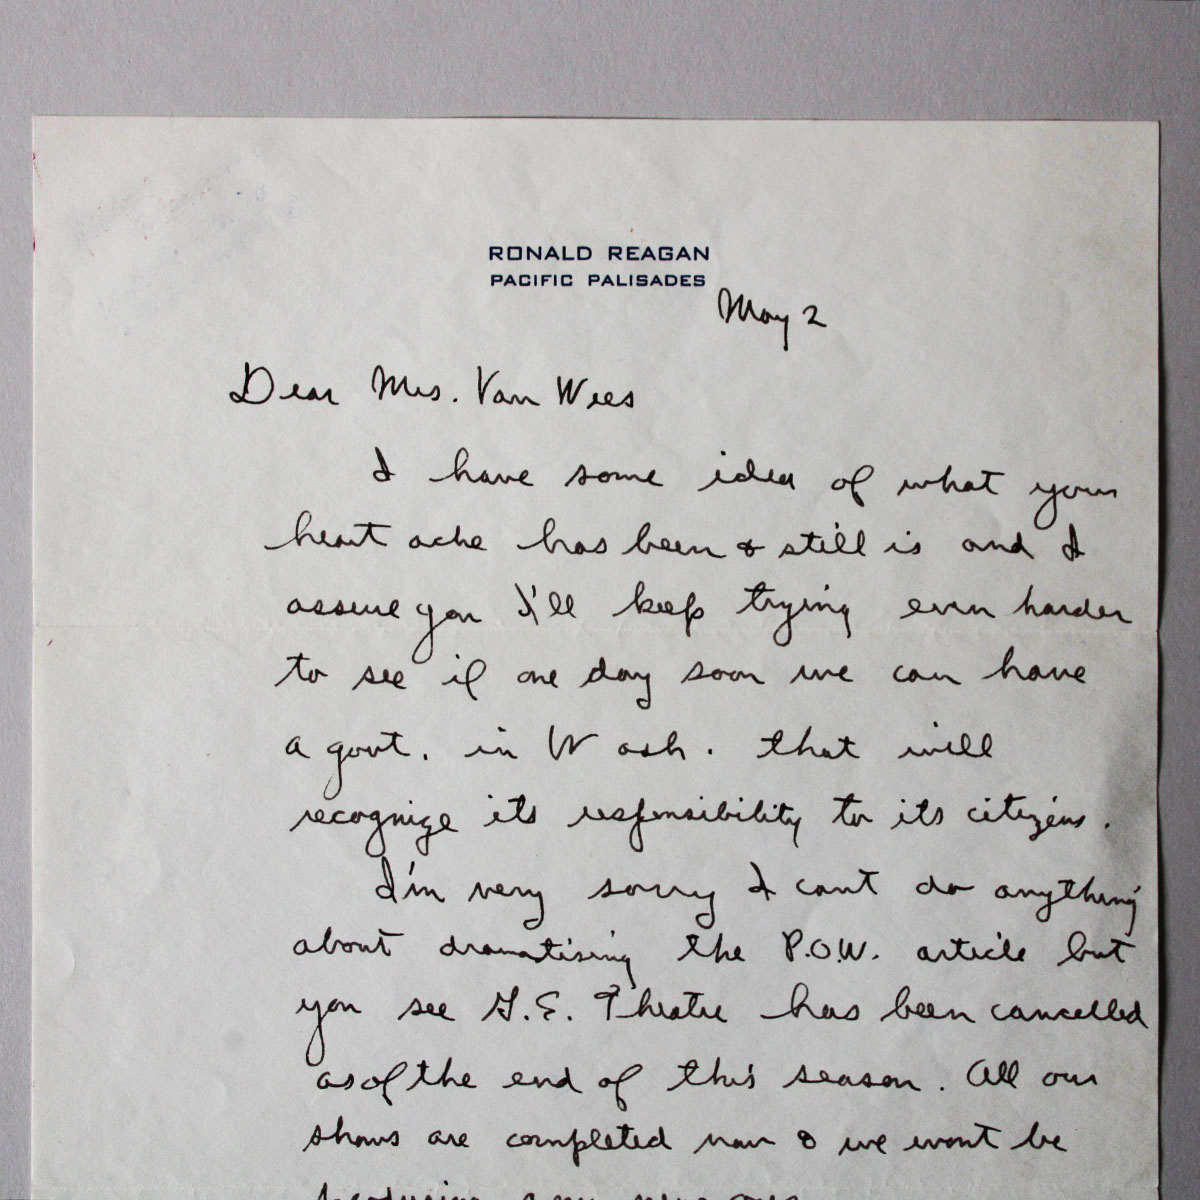 RONALD REAGAN
PACIFIC PALISADES
May 2
Dear Mrs. Van Wees
I have some idea of what your
heart ache has been & still is and I
assure you I'll keep trying even harder
to see if one day soon we can have
a govt. in Wash. that will
recognize its responsibility to its citizens.
I'm very sorry I cant do anything
about dramatising the P.O.W. article but
you see G.E. Theatre has been cancelled
as of the end of this season. All our
shows are completed now & we wont be
producing any new ones